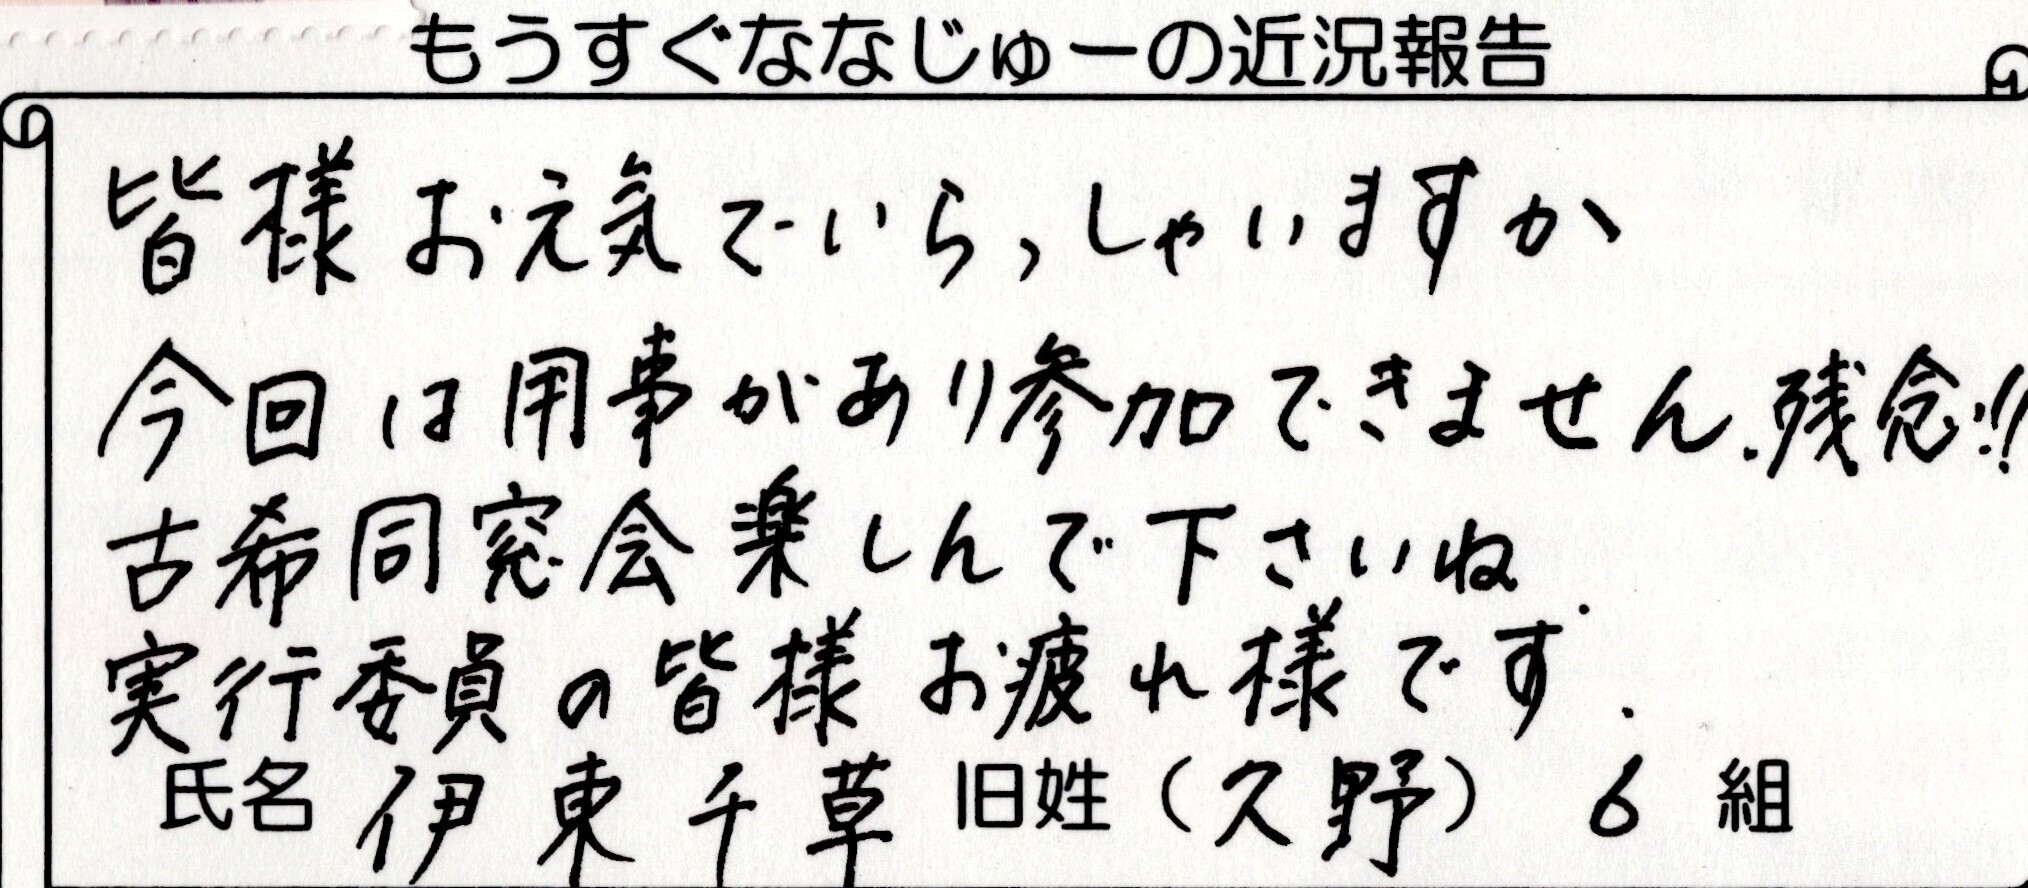 もうすぐななじゅーの近況報告
皆様お元気でいらっしゃいますか
今回は用事があり参加できません.残念!!
古希同窓会楽しんで下さいね.
実行委員の皆様お疲れ様です.
氏名 伊東千草 旧姓(久野) 6 組